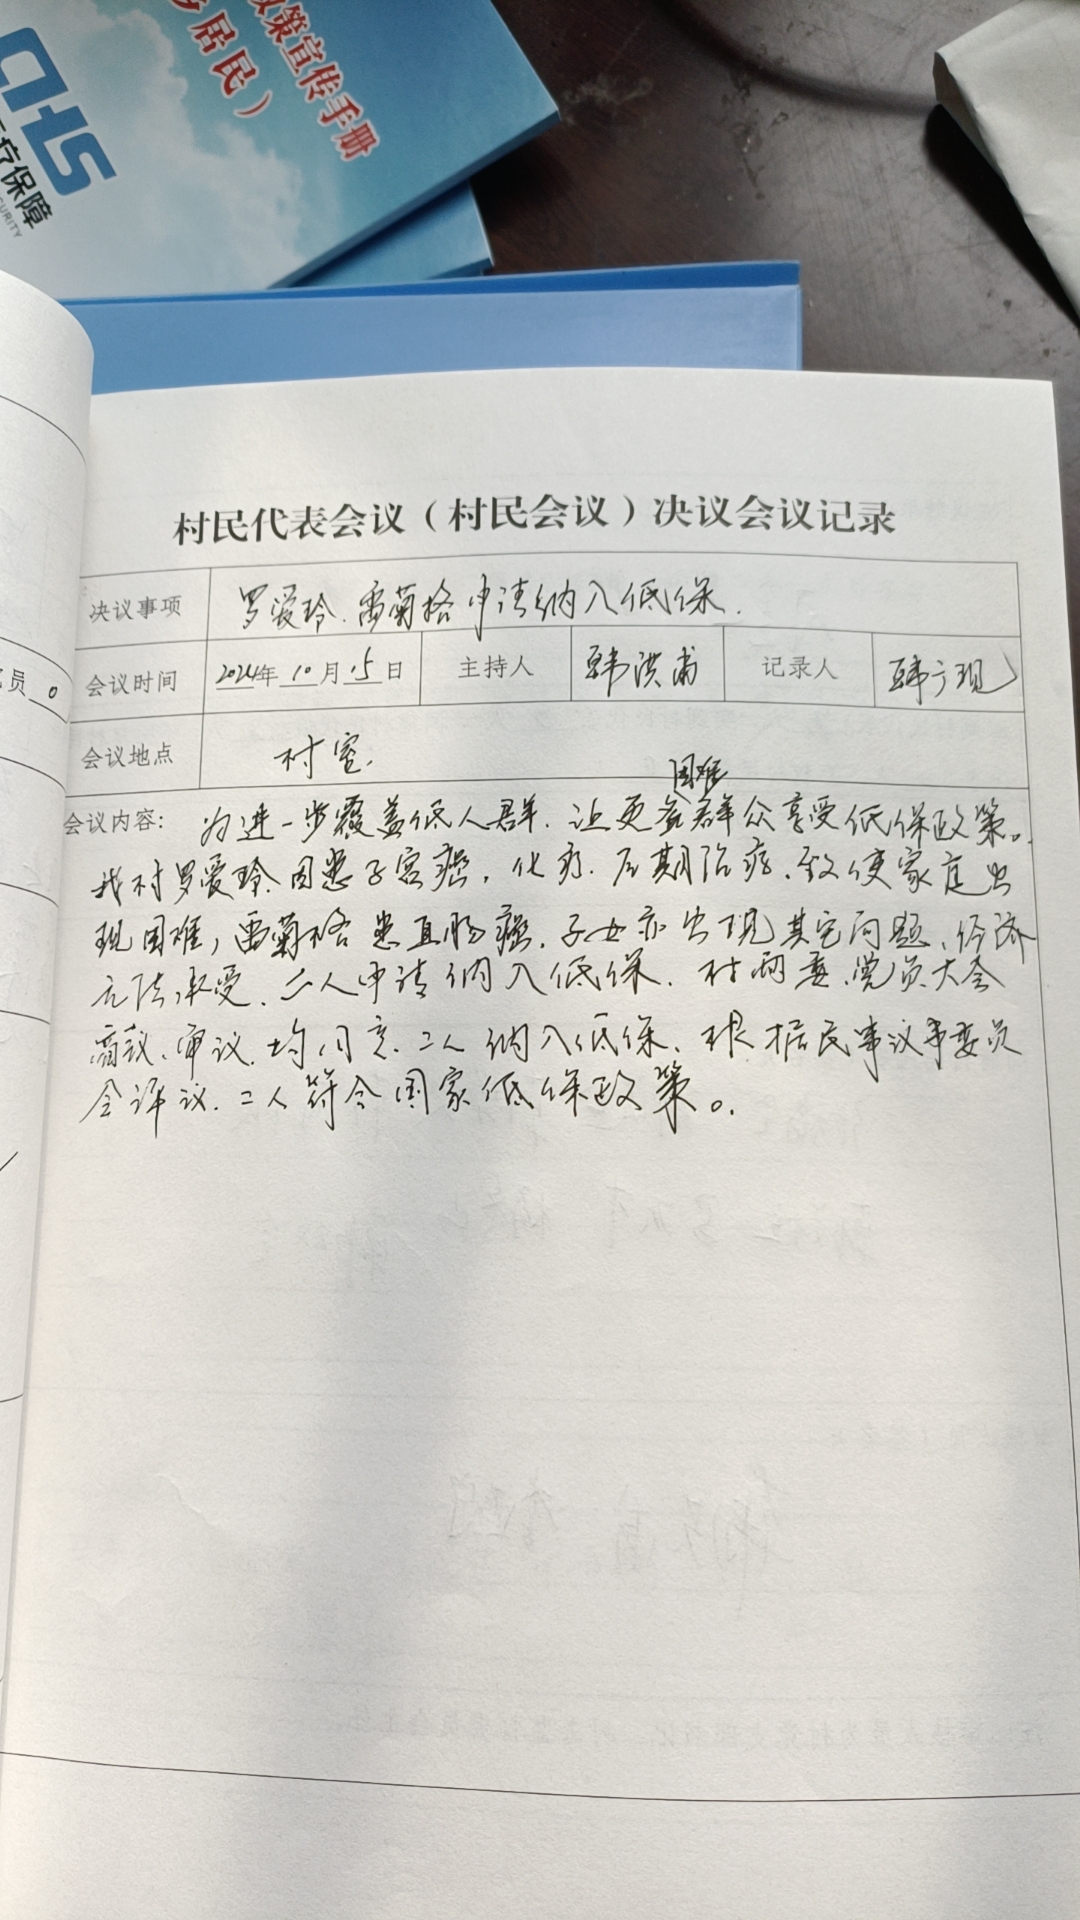 政策宣传手册
乡居民）
疗保障
CURITY
员 0
村民代表会议（村民会议）决议会议记录
决议事项 罗爱玲、雷菊格申请纳入低保.
会议时间 2024年10月15日 主持人 韩洪甫 记录人 韩广现
会议地点 村室.
困难
会议内容: 为进一步覆盖低人群.让更多群众享受低保政策。
我村罗爱玲.因患子宫癌,化疗.后期治疗.致使家庭出
现困难,雷菊格患直肠癌.子女亦出现其它问题、经济
无法承受.二人申请纳入低保.村两委.党员大会
商议、审议.均同意.二人纳入低保.根据民事议事委员
会评议.二人符合国家低保政策。